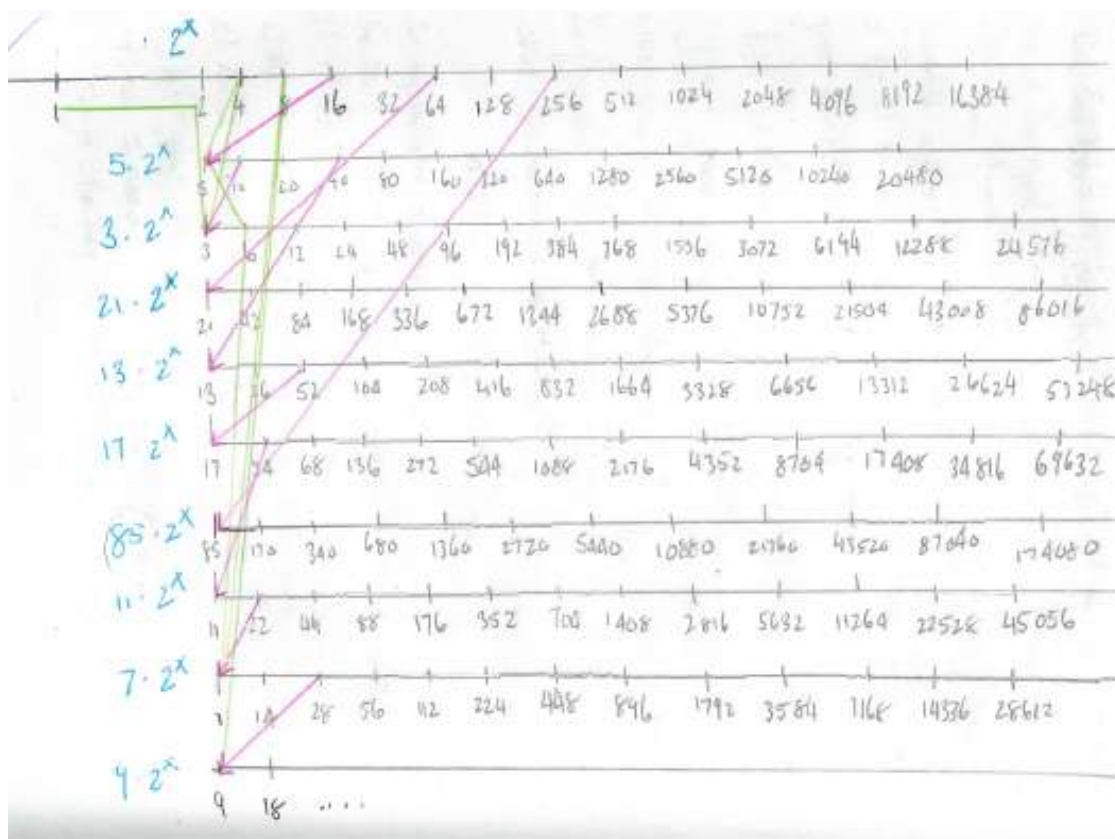 · 2^x
1 2 4 8 16 32 64 128 256 512 1024 2048 4096 8192 16384
5 · 2^x
5 10 20 40 80 160 320 640 1280 2560 5120 10240 20480
3 · 2^x
3 6 12 24 48 96 192 384 768 1536 3072 6144 12288 24576
21 · 2^x
21 42 84 168 336 672 1344 2688 5376 10752 21504 43008 86016
13 · 2^x
13 26 52 104 208 416 832 1664 3328 6656 13312 26624 53248
17 · 2^x
17 34 68 136 272 544 1088 2176 4352 8704 17408 34816 69632
(85 · 2^x
85 170 340 680 1360 2720 5440 10880 21760 43520 87040 174080
11 · 2^x
11 22 44 88 176 352 704 1408 2816 5632 11264 22528 45056
7 · 2^x
14 28 56 112 224 448 896 1792 3584 7168 14336 28612
9 · 2^x
9 18 ....